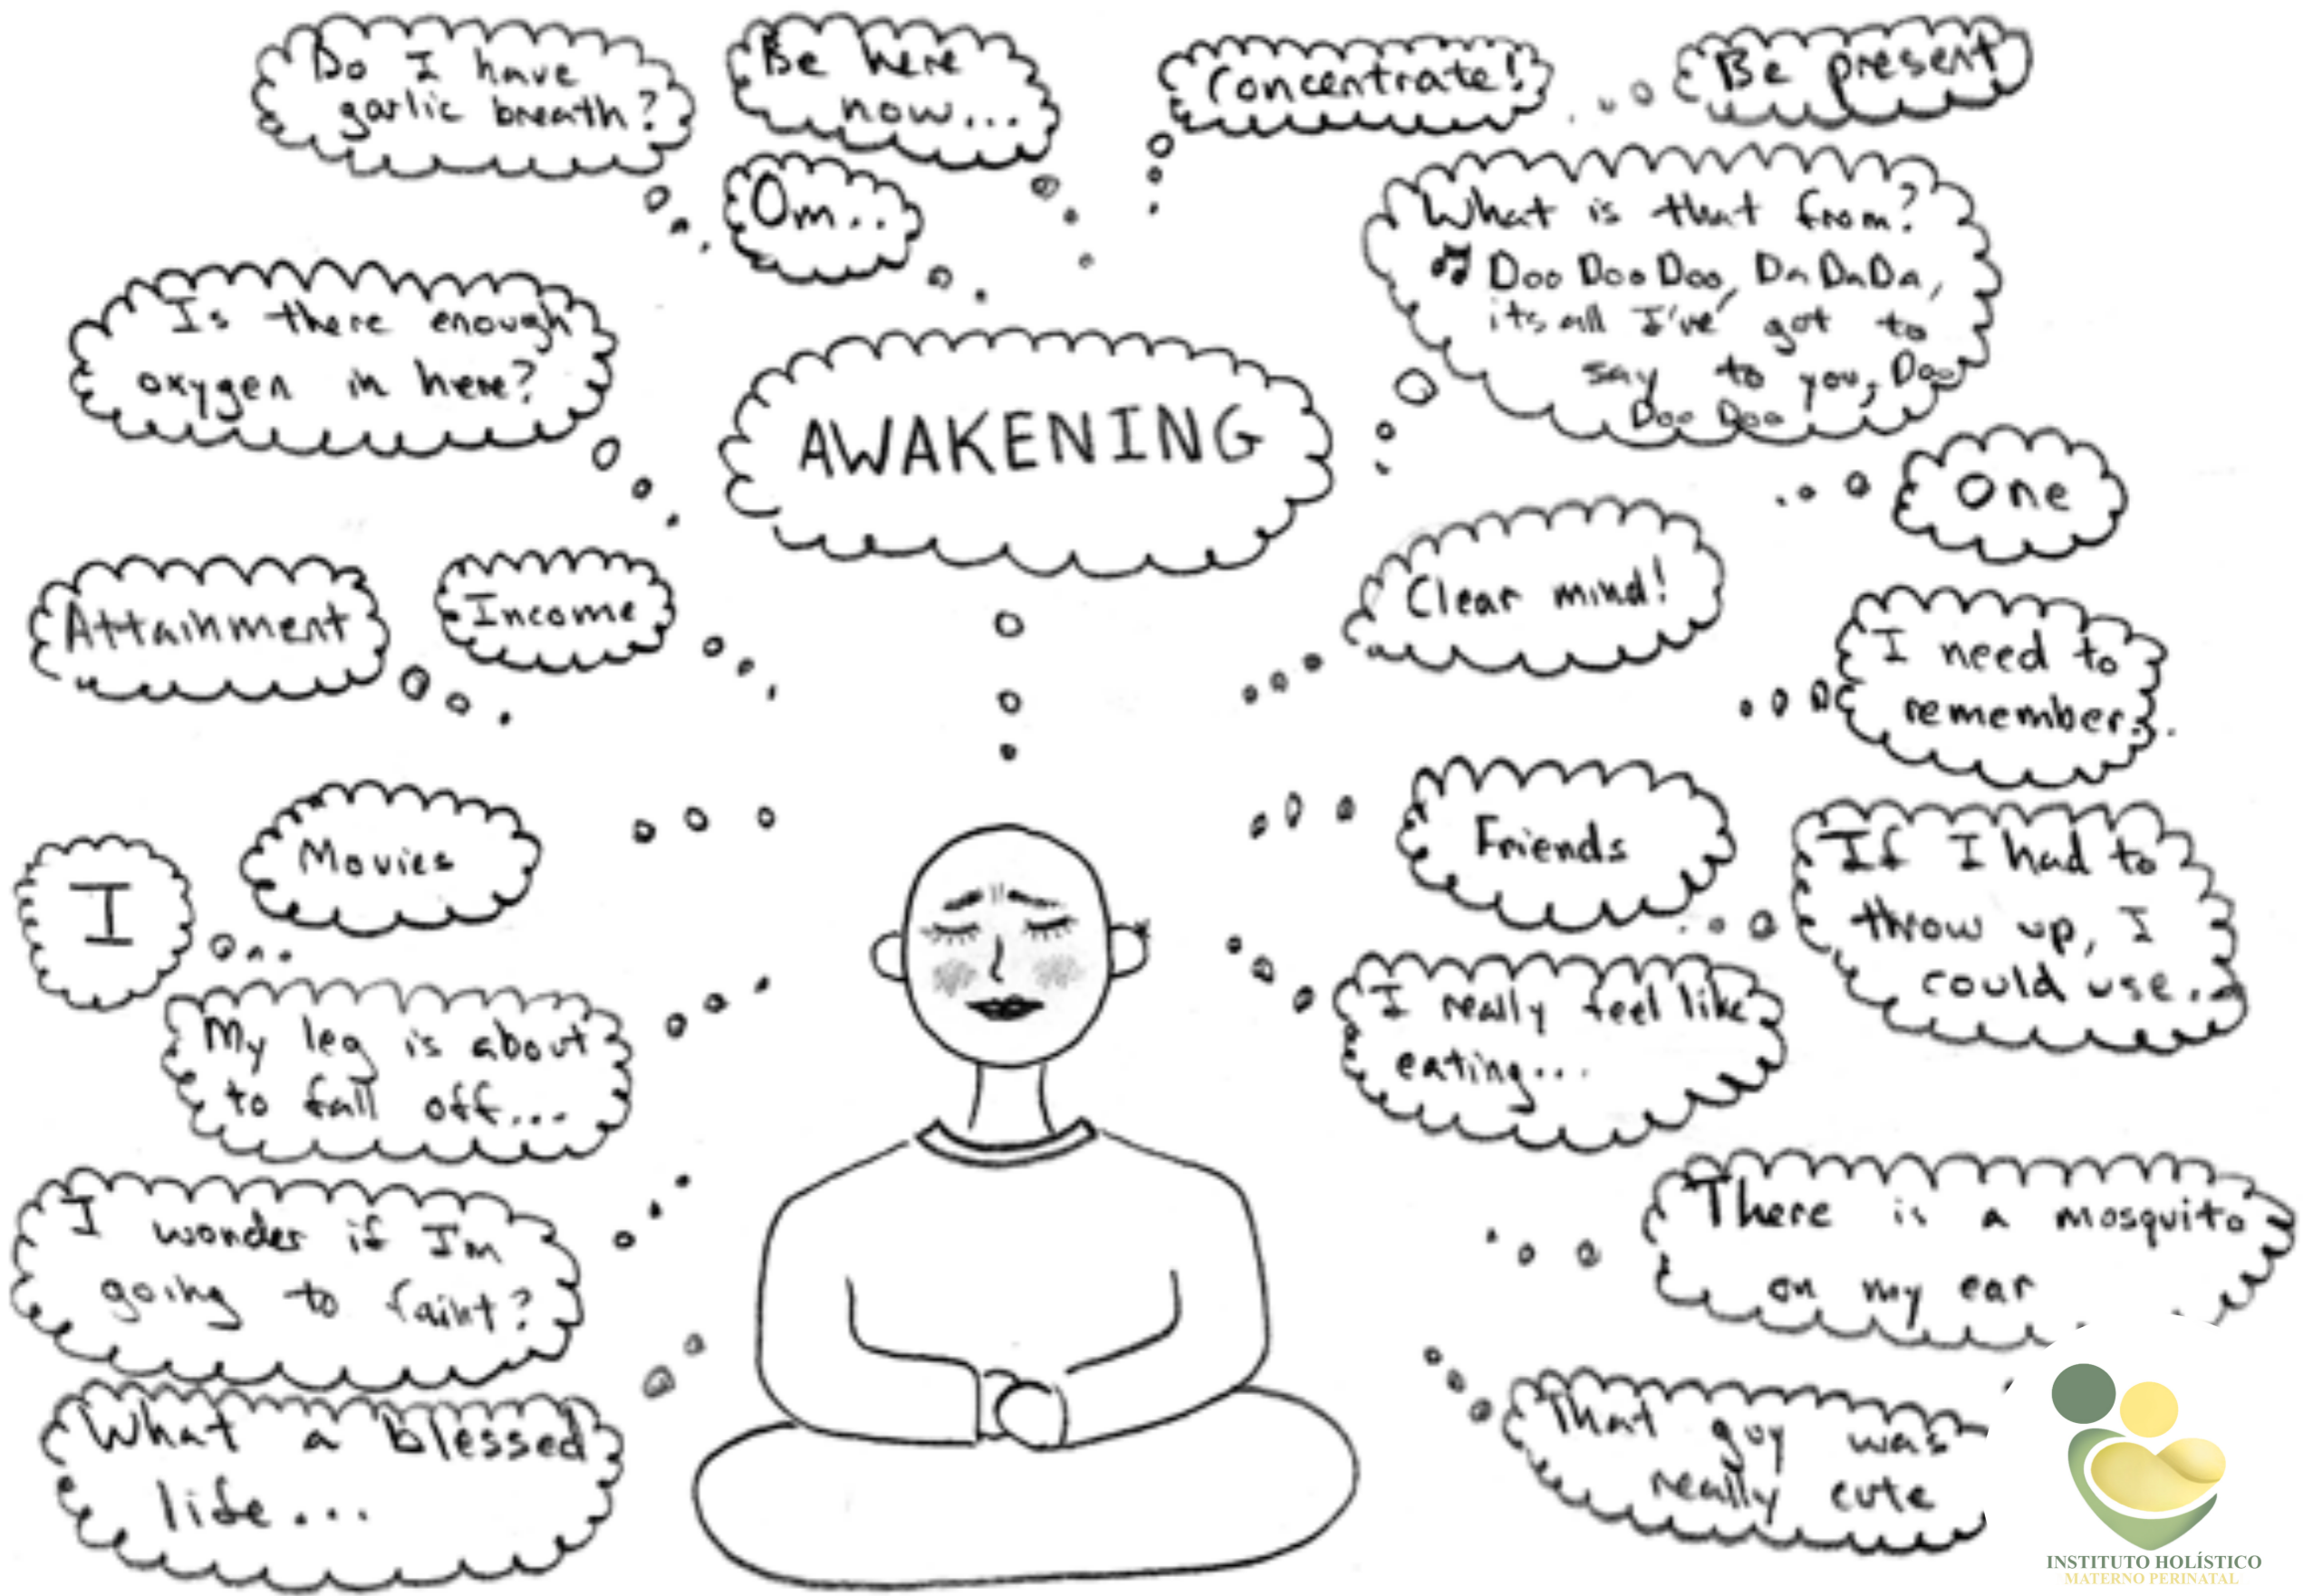 Do I have
garlic breath?
Be here
now...
Concentrate!
Be present
Om..
What is that from?
♫ Doo Doo Doo, Da Da Da,
its all I've got to
say to you, Doo
Doo Doo
Is there enough
oxygen in here?
AWAKENING
One
Attainment
Income
Clear mind!
I need to
remember...
Movies
I
Friends
If I had to
throw up, I
could use..
My leg is about
to fall off...
I really feel like
eating...
I wonder if I'm
going to faint?
There is a mosquito
on my ear
What a blessed
life...
That guy was
really cute
INSTITUTO HOLÍSTICO
MATERNO PERINATAL